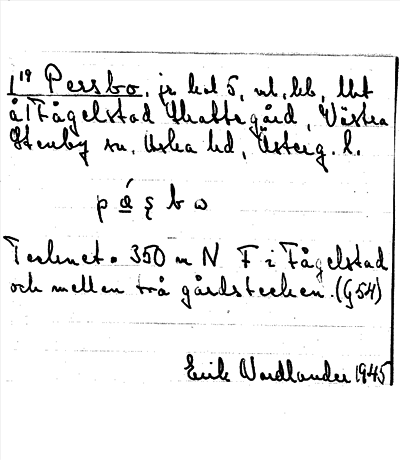 1¹⁹ Persbo, jr kol 5, ut. lib, tht
å Fågelstad Skattegård, Västra
Stenby sn, Aska hd, Österg. l.
p á ș b ω
Tecknet 350 m N F i Fågelstad
och mellan två gårdstecken. (G 54)
Erik Nordlander 1945